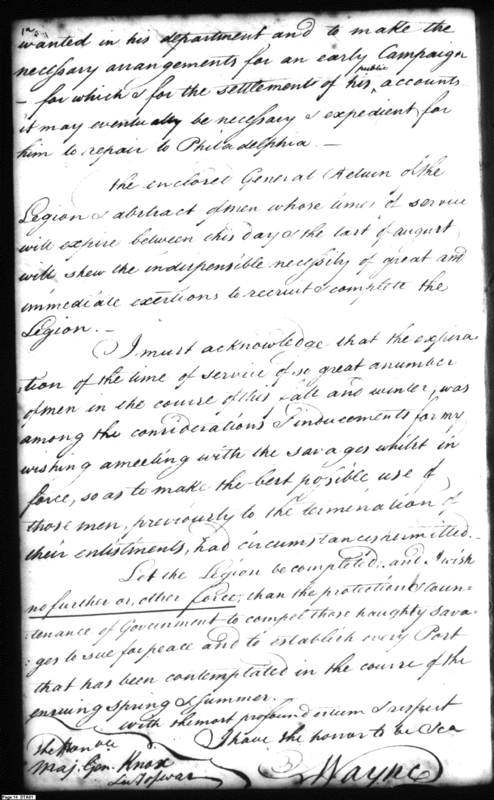 wanted in his department and to make the
necessary arrangements for an early Campaign
- for which & for the settlements of his public accounts
it may eventually be necessary & expedient for
him to repair to Philadelphia. -
The enclosed General Return of the
Legion & abstract of men whose times of service
will expire between this day & the last of august
will shew the indispensible necessity of great and
immediate exertions to recruit & complete the
Legion. -
I must acknowledge that the expira=
=tion of the time of service of so great a number
of men in the course of this fall and winter, was
among the considerations & inducements for my
wishing a meeting with the savages whilst in
force, so as to make the best possible use of
those men, previously to the termination of
their enlistments, had circumstances permitted. -
Let the Legion be completed; and I wish
no further or other force, than the protection & coun=
=tenance of Government to compel those haughty sava=
=ges to sue for peace and to establish every Post
that has been contemplated in the course of the
ensuing spring & summer.
with the most profound esteem & respect
I have the honor to be &ca
The Honble
Maj. Gen. Knox
Secy of War
Wayne
Page 14